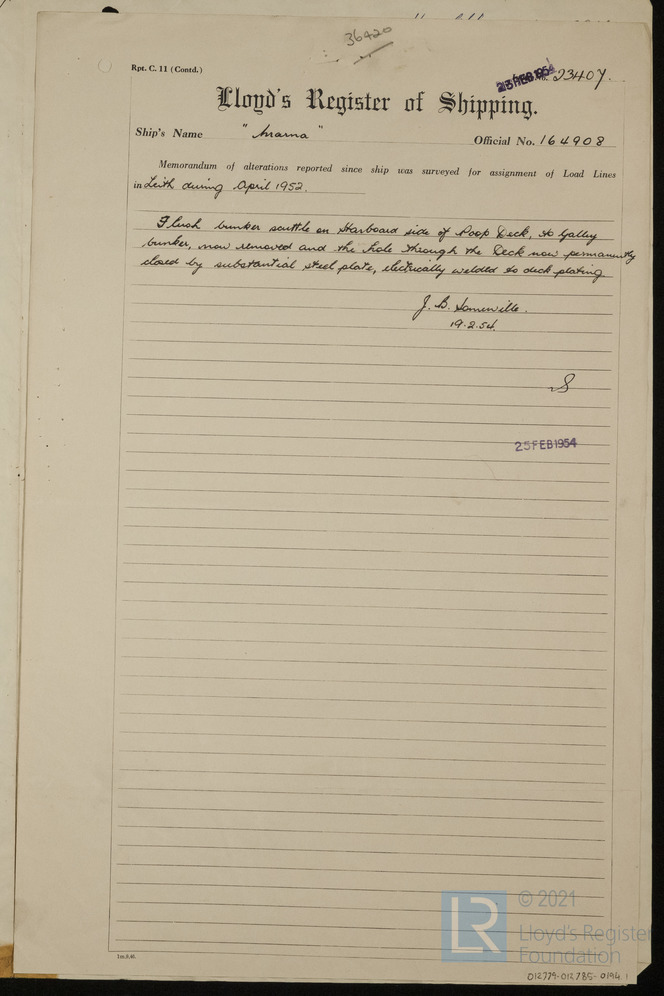 36420
Rpt. C. 11 (Contd.)
23 FEB 1954
No. 23407.
Lloyd's Register of Shipping.
Ship's Name " " Official No. 164908
Memorandum of alterations reported since ship was surveyed for assignment of Load Lines
in Leith during April 1952.
Flush bunker scuttle on Starboard side of Poop Deck, to Galley
bunker, now removed and the hole through the Deck now permanently
closed by substantial steel plate, electrically welded to deck plating.
J. B. Somerville.
19.2.54.
25 FEB 1954
LR
© 2021
Lloyd's Register
Foundation
012779-012785-0194